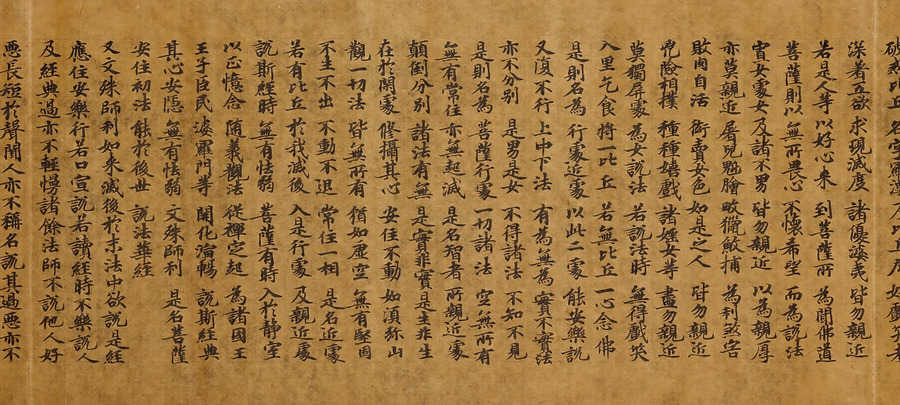 深著五欲 求現滅度 諸優婆夷 皆勿親近
若是人等 以好心來 到菩薩所 為聞佛道
菩薩則以 無所畏心 不懷希望 而為說法
寡女處女 及諸不男 皆勿親近 以為親厚
亦莫親近 屠兒魁膾 畋獵漁捕 為利煞害
販肉自活 衒賣女色 如是之人 皆勿親近
兇險相撲 種種嬉戲 諸婬女等 盡勿親近
莫獨屏處 為女說法 若說法時 無得戲笑
入里乞食 將一比丘 若無比丘 一心念佛
是則名為 行處近處 以此二處 能安樂說
又復不行 上中下法 有為無為 實不實法
亦不分別 是男是女 不得諸法 不知不見
是則名為 菩薩行處 一切諸法 空無所有
無有常住 亦無起滅 是名智者 所親近處
顛倒分別 諸法有無 是實非實 是生非生
在於閑處 修攝其心 安住不動 如須彌山
觀一切法 皆無所有 猶如虛空 無有堅固
不生不出 不動不退 常住一相 是名近處
若有比丘 於我滅後 入是行處 及親近處
說斯經時 無有怯弱 菩薩有時 入於靜室
以正憶念 隨義觀法 從禪定起 為諸國王
王子臣民 婆羅門等 開化演暢 說斯經典
其心安隱 無有怯弱 文殊師利 是名菩薩
安住初法 能於後世 說法華經
又文殊師利如來滅後於末法中欲說是經
應住安樂行若口宣說若讀經時不樂說人
及經典過亦不輕慢諸餘法師不說他人好
惡長短於聲聞人亦不稱名說其過惡亦不